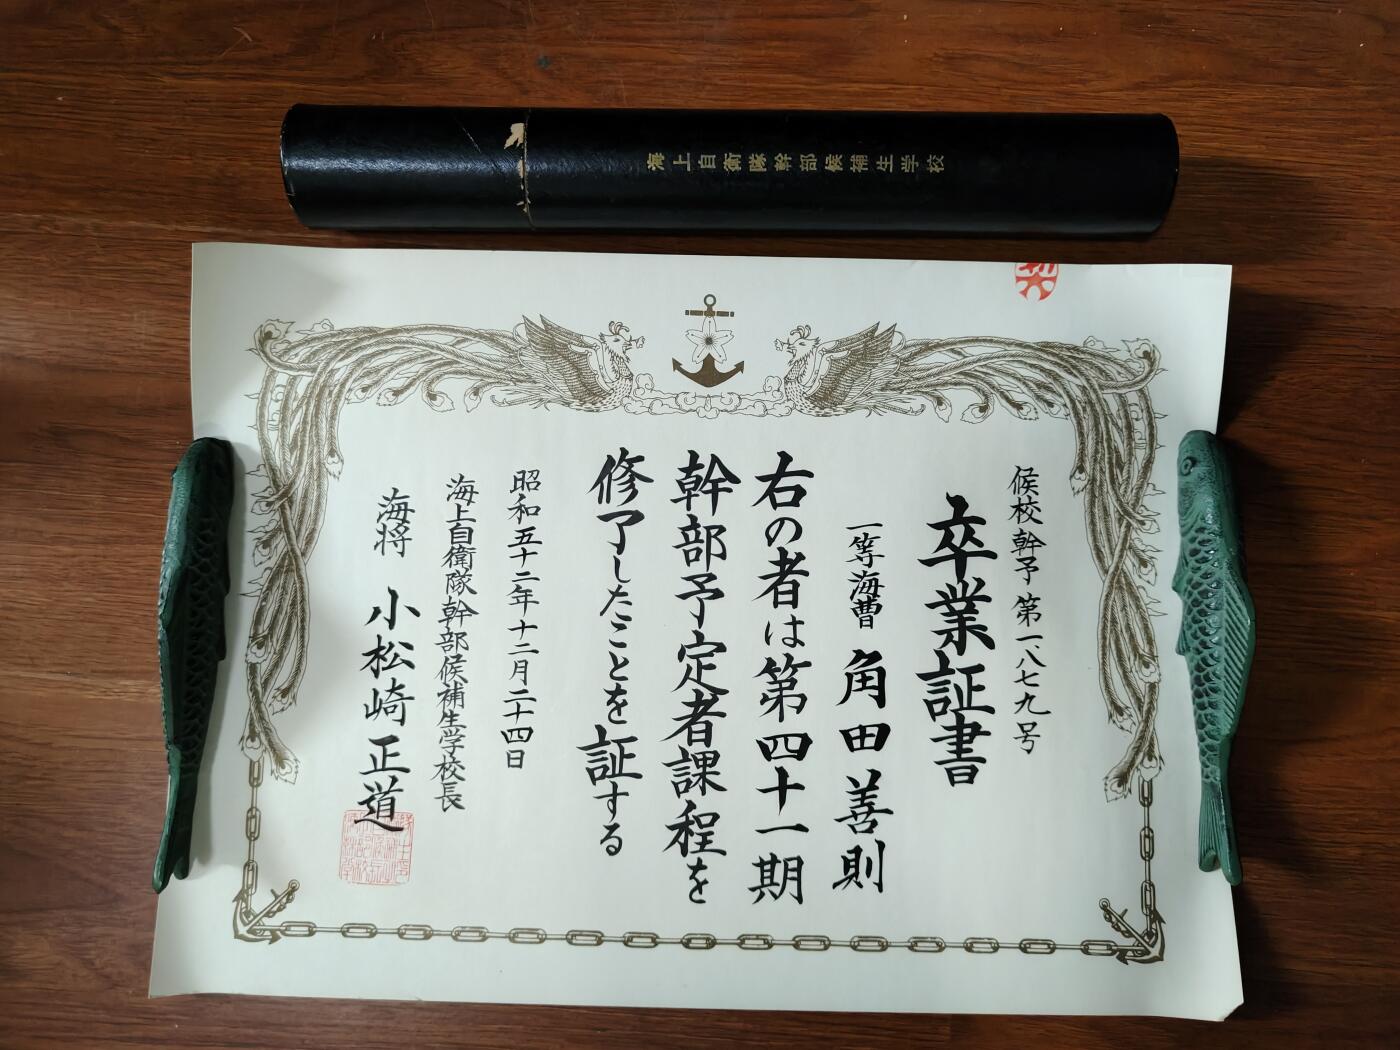 海上自衛隊幹部候補生学校
候校幹予第一八七九号
卒業証書
一等海曹 角田善則
右の者は第四十一期
幹部予定者課程を
修了したことを証する
昭和五十二年十二月二十四日
海上自衛隊幹部候補生学校長
海将 小松崎正道